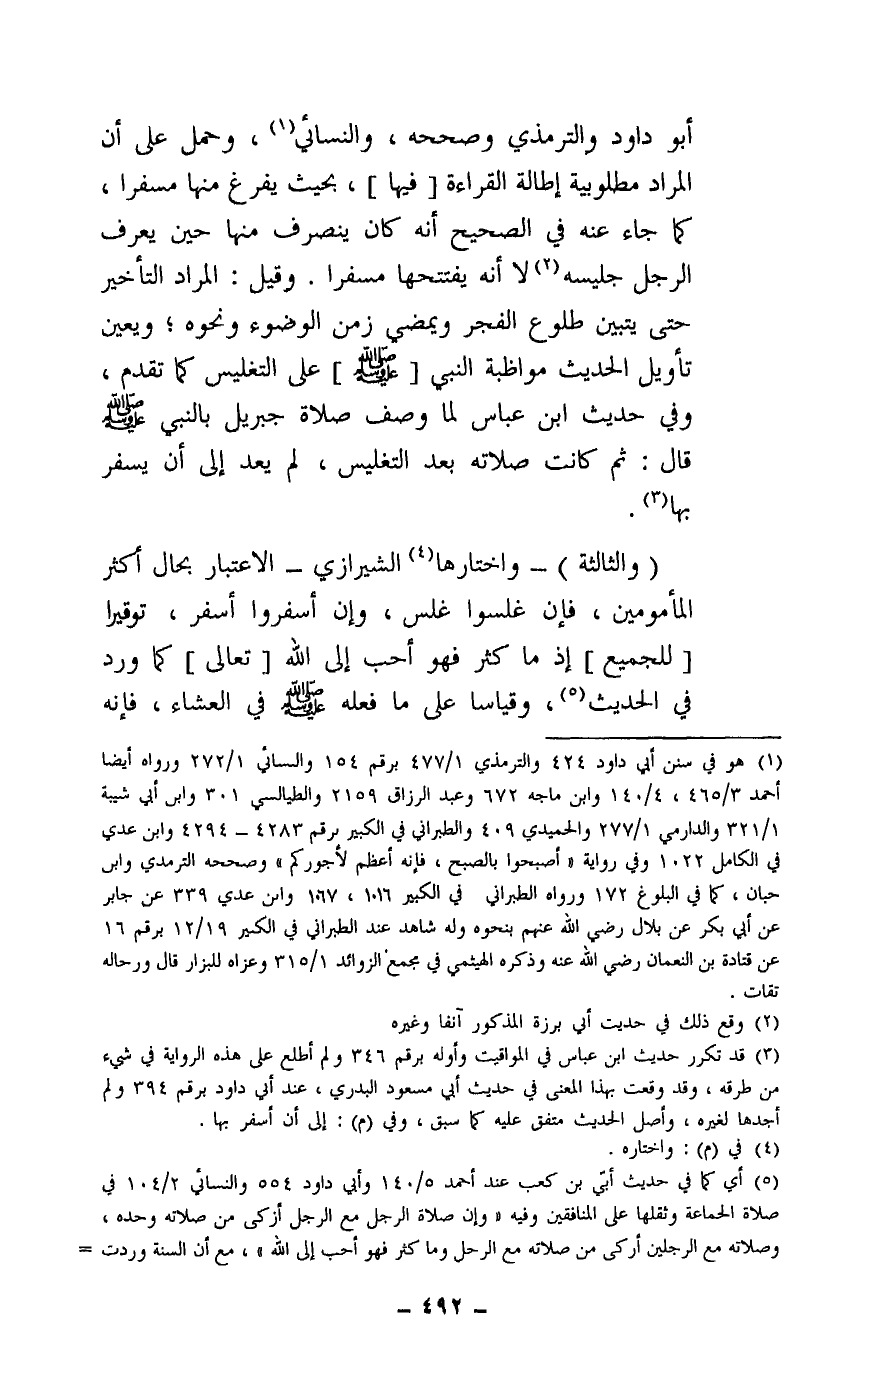 أبو داود والترمذي وصححه ، والنسائي(١) ، وحمل على أن
المراد مطلوبية إطالة القراءة [ فيها ] ، بحيث يفرغ منها مسفرا ،
كما جاء عنه في الصحيح أنه كان ينصرف منها حين يعرف
الرجل جليسه(٢) لا أنه يفتتحها مسفرا . وقيل : المراد التأخير
حتى يتبين طلوع الفجر ويمضي زمن الوضوء ونحوه ؛ ويعين
تأويل الحديث مواظبة النبي [ ﷺ ] على التغليس كما تقدم ،
وفي حديث ابن عباس لما وصف صلاة جبريل بالنبي ﷺ
قال : ثم كانت صلاته بعد التغليس ، لم يعد إلى أن يسفر
بها(٣) .
( والثالثة ) – واختارها(٤) الشيرازي – الاعتبار بحال أكثر
المأمومين ، فإن غلسوا غلس ، وإن أسفروا أسفر ، توقيرا
[ للجميع ] إذ ما كثر فهو أحب إلى الله [ تعالى ] كما ورد
في الحديث(٥) ، وقياسا على ما فعله ﷺ في العشاء ، فإنه
(١) هو في سنن أبي داود ٤٢٤ والترمذي ٤٧٧/١ برقم ١٥٤ والسائي ٢٧٢/١ ورواه أيضا
أحمد ٤٦٥/٣ ، ١٤٠/٤ وابن ماجه ٦٧٢ وعبد الرزاق ٢١٥٩ والطيالسي ٣٠١ وابن أبي شيبة
٣٢١/١ والدارمي ٢٧٧/١ والحميدي ٤٠٩ والطبراني في الكبير برقم ٤٢٨٣ – ٤٢٩٤ وابن عدي
في الكامل ١٠٢٢ وفي رواية « أصبحوا بالصبح ، فإنه أعظم لأجوركم » وصححه الترمدي وابن
حبان ، كما في البلوغ ١٧٢ ورواه الطبراني في الكبير ١٠١٦ ، ١٠٦٧ وابن عدي ٣٣٩ عن جابر
عن أبي بكر عن بلال رضي الله عنهم بنحوه وله شاهد عند الطبراني في الكبير ١٢/١٩ برقم ١٦
عن قتادة بن النعمان رضي الله عنه وذكره الهيثمي في مجمع الزوائد ٣١٥/١ وعزاه للبزار قال ورحاله
تقات .
(٢) وقع ذلك في حديث أبي برزة المذكور آنفا وغيره
(٣) قد تكرر حديث ابن عباس في المواقيت وأوله برقم ٣٤٦ ولم أطلع على هذه الرواية في شيء
من طرقه ، وقد وقعت بهذا المعنى في حديث أبي مسعود البدري ، عند أبي داود برقم ٣٩٤ ولم
أجدها لغيره ، وأصل الحديث متفق عليه كما سبق ، وفي (م) : إلى أن أسفر بها .
(٤) في (م) : واختاره .
(٥) أي كما في حديث أبيّ بن كعب عند أحمد ١٤٠/٥ وأبي داود ٥٥٤ والنسائي ١٠٤/٢ في
صلاة الحماعة وثقلها على المنافقين وفيه « وإن صلاة الرجل مع الرجل أزكى من صلاته وحده ،
وصلاته مع الرجلين أركى من صلاته مع الرحل وما كثر فهو أحب إلى الله » ، مع أن السنة وردت =
– ٤٩٢ –